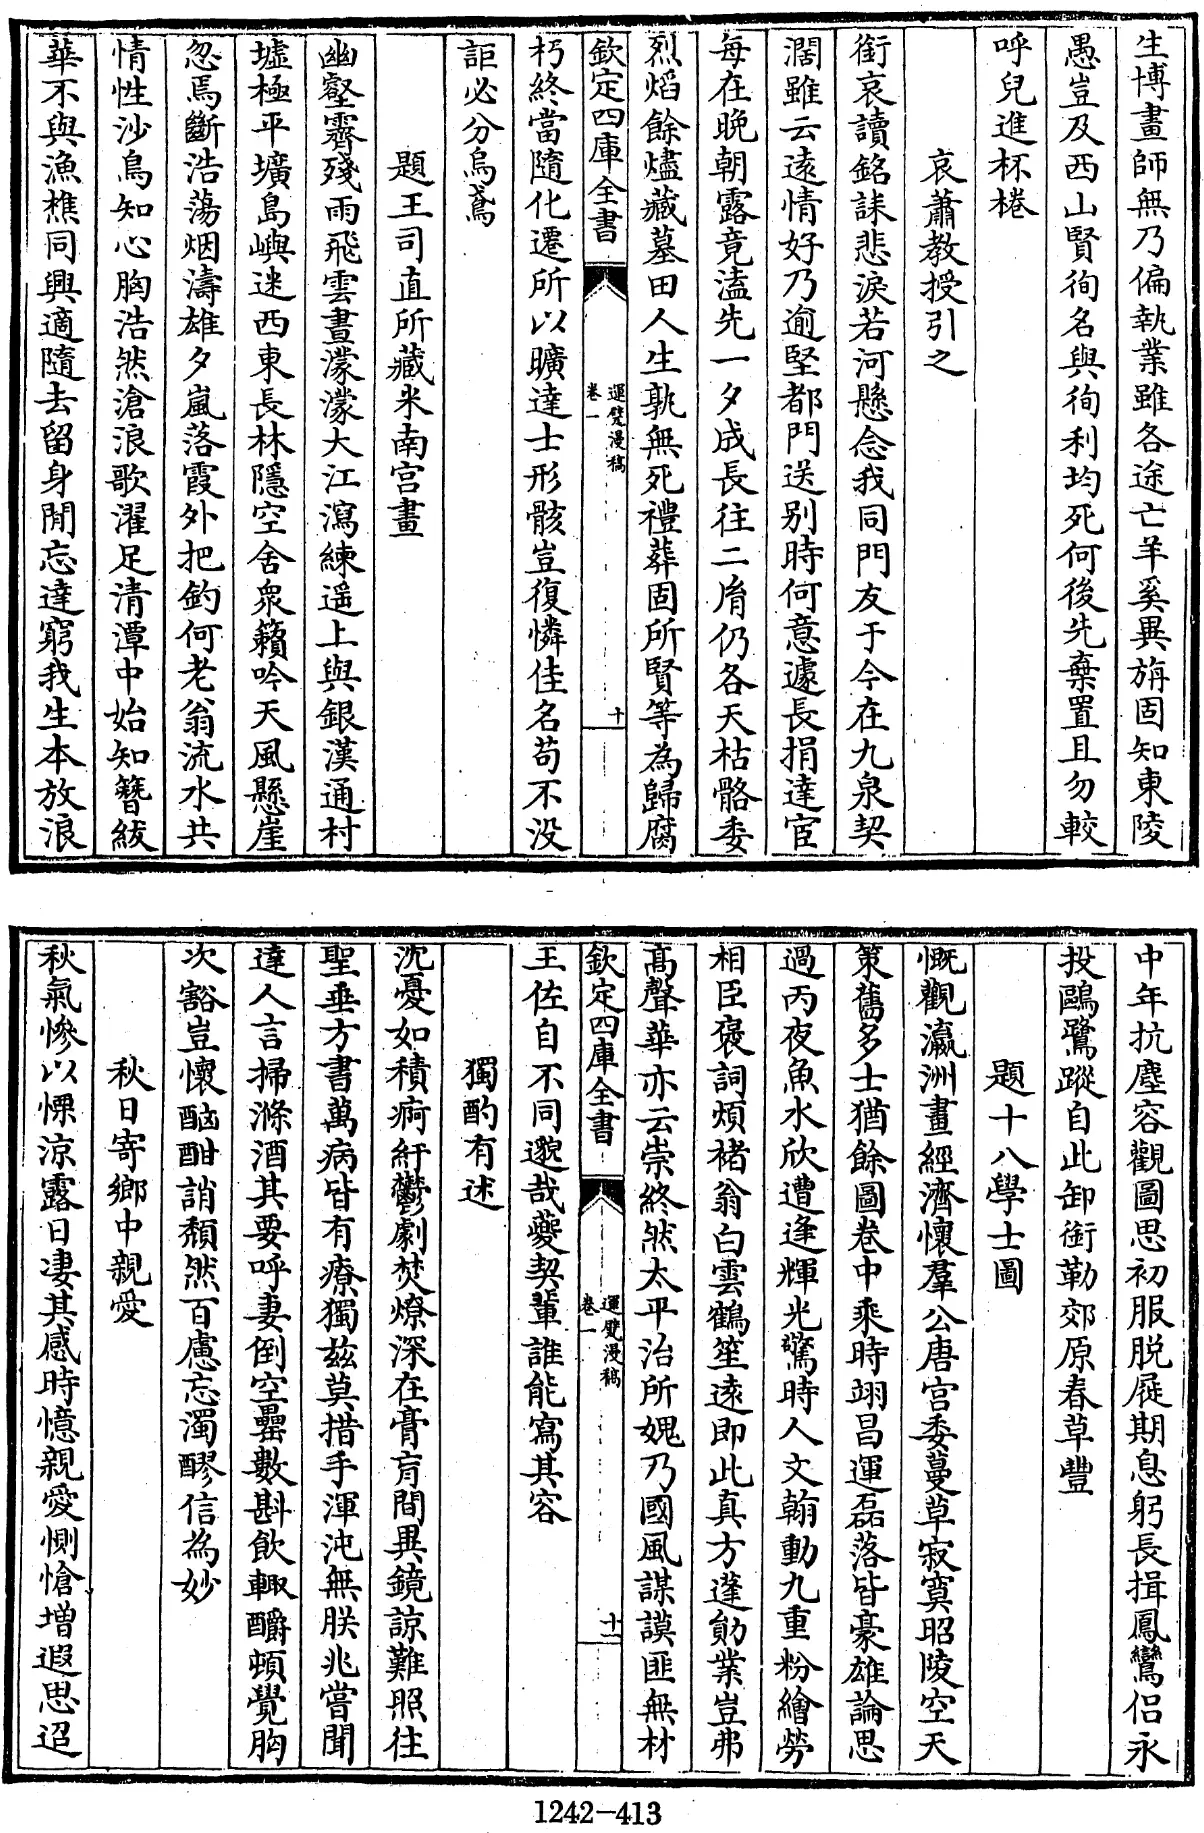 生博畫師無乃偏執業雖各途亡羊奚異旃固知東陵
愚豈及西山賢徇名與徇利均死何後先棄置且勿較
呼兒進杯棬
哀蕭教授引之
銜哀讀銘誄悲淚若河懸念我同門友于今在九泉契
濶雖云遠情好乃逾堅都門送别時何意遽長捐達宦
每在晚朝露竟溘先一夕成長往二胤仍各天枯骼委
烈焰餘燼藏墓田人生孰無死禮葬固所賢等為歸腐
欽定四庫全書
運甓漫稿
卷一
十
朽終當隨化遷所以曠達士形骸豈復憐佳名苟不没
詎必分烏鳶
題王司直所藏米南宫畫
幽壑霽殘雨飛雲晝濛濛大江瀉練遥上與銀漢通村
墟極平壙島嶼迷西東長林隱空舍衆籟吟天風懸崖
忽焉斷浩蕩烟濤雄夕嵐落霞外把釣何老翁流水共
情性沙鳥知心胸浩然滄浪歌濯足清潭中始知簪紱
華不與漁樵同興適隨去留身閒忘達窮我生本放浪
中年抗塵容觀圖思初服脱屣期息躬長揖鳳鸞侣永
投鷗鷺蹤自此卸銜勒郊原春草豐
題十八學士圖
慨觀瀛洲畫經濟懷羣公唐宫委蔓草寂寞昭陵空天
策舊多士猶餘圖卷中乘時翊昌運磊落皆豪雄論思
過丙夜魚水欣遭逢輝光驚時人文翰動九重粉繪勞
相臣襃詞煩褚翁白雲鶴笙遠即此真方蓬勛業豈弗
髙聲華亦云崇終然太平治所媿乃國風謀謨匪無材
欽定四庫全書
運甓漫稿
卷一
十一
王佐自不同邈哉夔契輩誰能寫其容
獨酌有述
沈憂如積痾紆鬱劇焚燎深在膏肓間異鏡諒難照往
聖垂方書萬病皆有療獨兹莫措手渾沌無朕兆嘗聞
達人言掃滌酒其要呼妻倒空罍數斟飲輙釂頓覺胸
次豁豈懷酗酣誚頽然百慮忘濁醪信為妙
秋日寄鄉中親愛
秋氣慘以慄涼露日凄其感時憶親愛惻愴增遐思迢
1242-413